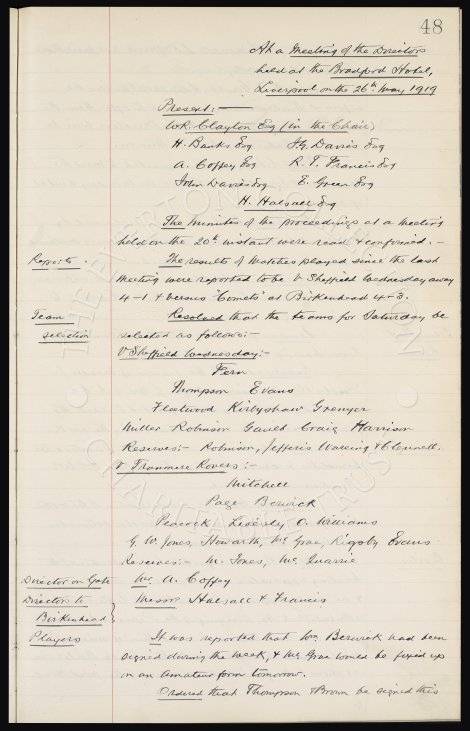 48
At a Meeting of the Directors
held at the Bradford Hotel,
Liverpool on the 26th May 1919
Present:—
W.R. Clayton Esq (in the Chair)
H. Banks Esq J.G. Davies Esq
A. Coffey Esq R. T. Francis Esq
John Davies Esq E. Green Esq
H. Halsall Esq
The minutes of the proceedings at a meeting
held on the 20th instant were read & confirmed. -
Reports. The results of Matches played since the last
meeting were reported to be V Sheffield Wednesday away
4-1 & versus "Comets" at Birkenhead 4-3.
Team Resolved that the teams for Saturday be
selection selected as follows:-
V Sheffield Wednesday:-
Fern
Thompson Evans
Fleetwood Kirsopp Grenyer
Miller Robinson Gault Craig Harrison
Reserves:- Robinson, Jefferis Wareing & Clennell.
V Tranmere Rovers:-
Mitchell
Page Berwick
Peacock O. Williams
G. W. Jones, Howarth, McGrae, Rigsby Evans
Reserves:- W. Jones, McQuarrie
Director on Gate Mr. A. Coffey
Directors to
Birkenhead } Messrs Halsall & Francis
Players It was reported that Wm Berwick had been
signed during the week, & McGrae would be fixed up
on an amateur form tomorrow.
Ordered that Thompson & Brown be signed this
THE EVERTON COLLECTION
CHARITABLE TRUST